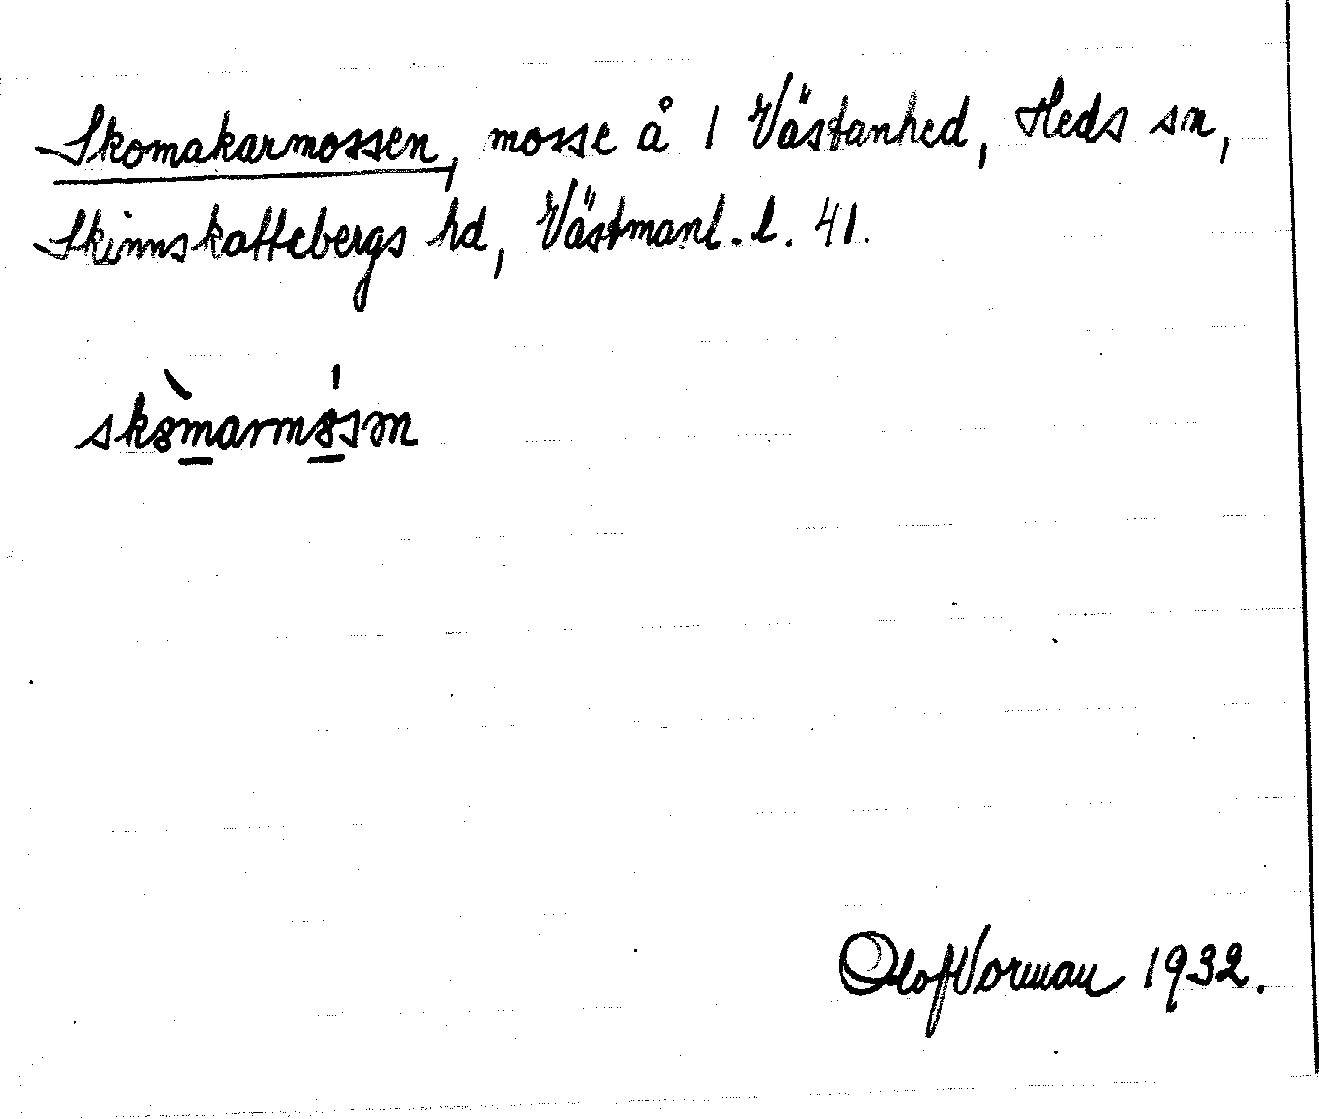 Skomakarmossen, mosse å 1 Västanhed, Heds sn,
Skinnskattebergs hd, Västmanl. l. 41.
Olof Vorman 1932.